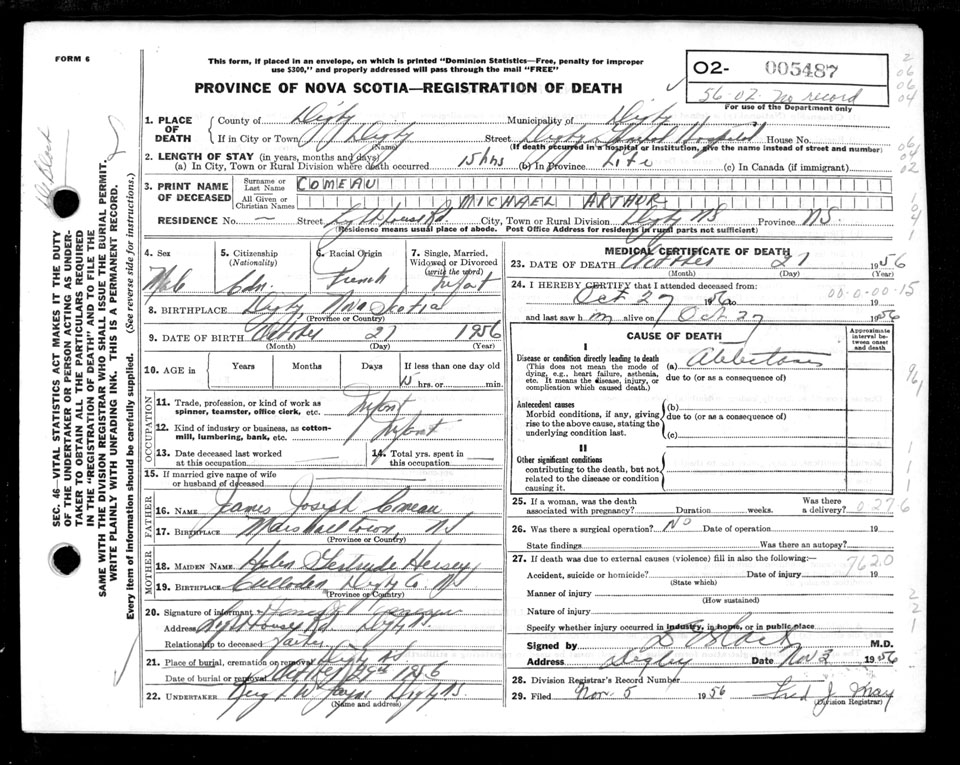 FORM 6
This form, if placed in an envelope, on which is printed "Dominion Statistics—Free, penalty for improper
use $300," and properly addressed will pass through the mail "FREE"
PROVINCE OF NOVA SCOTIA—REGISTRATION OF DEATH
O2- 005487
56-02- No record
For use of the Department only
SEC. 46—VITAL STATISTICS ACT MAKES IT THE DUTY
OF THE UNDERTAKER OR PERSON ACTING AS UNDER-
TAKER TO OBTAIN ALL THE PARTICULARS REQUIRED
IN THE "REGISTRATION OF DEATH" AND TO FILE THE
SAME WITH THE DIVISION REGISTRAR WHO SHALL ISSUE THE BURIAL PERMIT.
WRITE PLAINLY WITH UNFADING INK. THIS IS A PERMANENT RECORD.
Every item of information should be carefully supplied. (See reverse side for instructions.)
1. PLACE OF DEATH
County of Digby Municipality of Digby
If in City or Town Digby Street Digby General Hospital House No.
(Name) (If death occurred in a hospital or institution, give the name instead of street and number)
2. LENGTH OF STAY (in years, months and days)
(a) In City, Town or Rural Division where death occurred 15 hrs (b) In Province Life (c) In Canada (if immigrant)
3. PRINT NAME OF DECEASED
Surname or Last Name COMEAU
All Given or Christian Names MICHAEL ARTHUR
RESIDENCE No. — Street Lighthouse Rd. City, Town or Rural Division Digby NS Province N.S.
(Residence means usual place of abode. Post Office Address for residents in rural parts not sufficient)
4. Sex Male
5. Citizenship (Nationality) Cdn.
6. Racial Origin French
7. Single, Married, Widowed or Divorced (write the word) Infant
8. BIRTHPLACE Digby Nova Scotia
(Province or Country)
9. DATE OF BIRTH October 27 1956
(Month) (Day) (Year)
10. AGE in Years Months Days If less than one day
15 hrs. or min.
OCCUPATION
11. Trade, profession, or kind of work as
spinner, teamster, office clerk, etc. Infant
12. Kind of industry or business, as cotton-
mill, lumbering, bank, etc. Infant
13. Date deceased last worked
at this occupation
14. Total yrs. spent in
this occupation
15. If married give name of wife
or husband of deceased
FATHER
16. NAME James Joseph Comeau
17. BIRTHPLACE Marshalltown, NS
(Province or Country)
MOTHER
18. MAIDEN NAME Helen Gertrude Hersey
19. BIRTHPLACE Culloden Digby Co. NS
(Province or Country)
20. Signature of informant Comeau
Address Lighthouse Rd. Digby NS.
Relationship to deceased Father
21. Place of burial, cremation or removal Digby NS
Date of burial or removal October 29th 1956
22. UNDERTAKER Digby NS.
(Name and address)
MEDICAL CERTIFICATE OF DEATH
23. DATE OF DEATH October 27 1956
(Month) (Day) (Year)
24. I HEREBY CERTIFY that I attended deceased from:
Oct 27 1956 to 19
00-0-00-15
and last saw him alive on Oct 27 1956
CAUSE OF DEATH
Approximate interval between onset and death
I
Disease or condition directly leading to death
(This does not mean the mode of
dying, e.g., heart failure, asthenia,
etc. It means the disease, injury, or
complication which caused death.)
(a) Atelectasis
due to (or as a consequence of)
Antecedent causes
Morbid conditions, if any, giving
rise to the above cause, stating the
underlying condition last.
(b)
due to (or as a consequence of)
(c)
II
Other significant conditions
contributing to the death, but not
related to the disease or condition
causing it.
25. If a woman, was the death
associated with pregnancy? Duration weeks. Was there a delivery? 0276
26. Was there a surgical operation? No Date of operation 19
State findings Was there an autopsy?
27. If death was due to external causes (violence) fill in also the following:— 7620
Accident, suicide or homicide? Date of injury 19
(State which)
Manner of injury
(How sustained)
Nature of injury
Specify whether injury occurred in industry, in home, or in public place
Signed by M.D.
Address Digby Date Nov 2 1956
28. Division Registrar's Record Number
29. Filed Nov. 5 1956 Fred J. May
(Division Registrar)